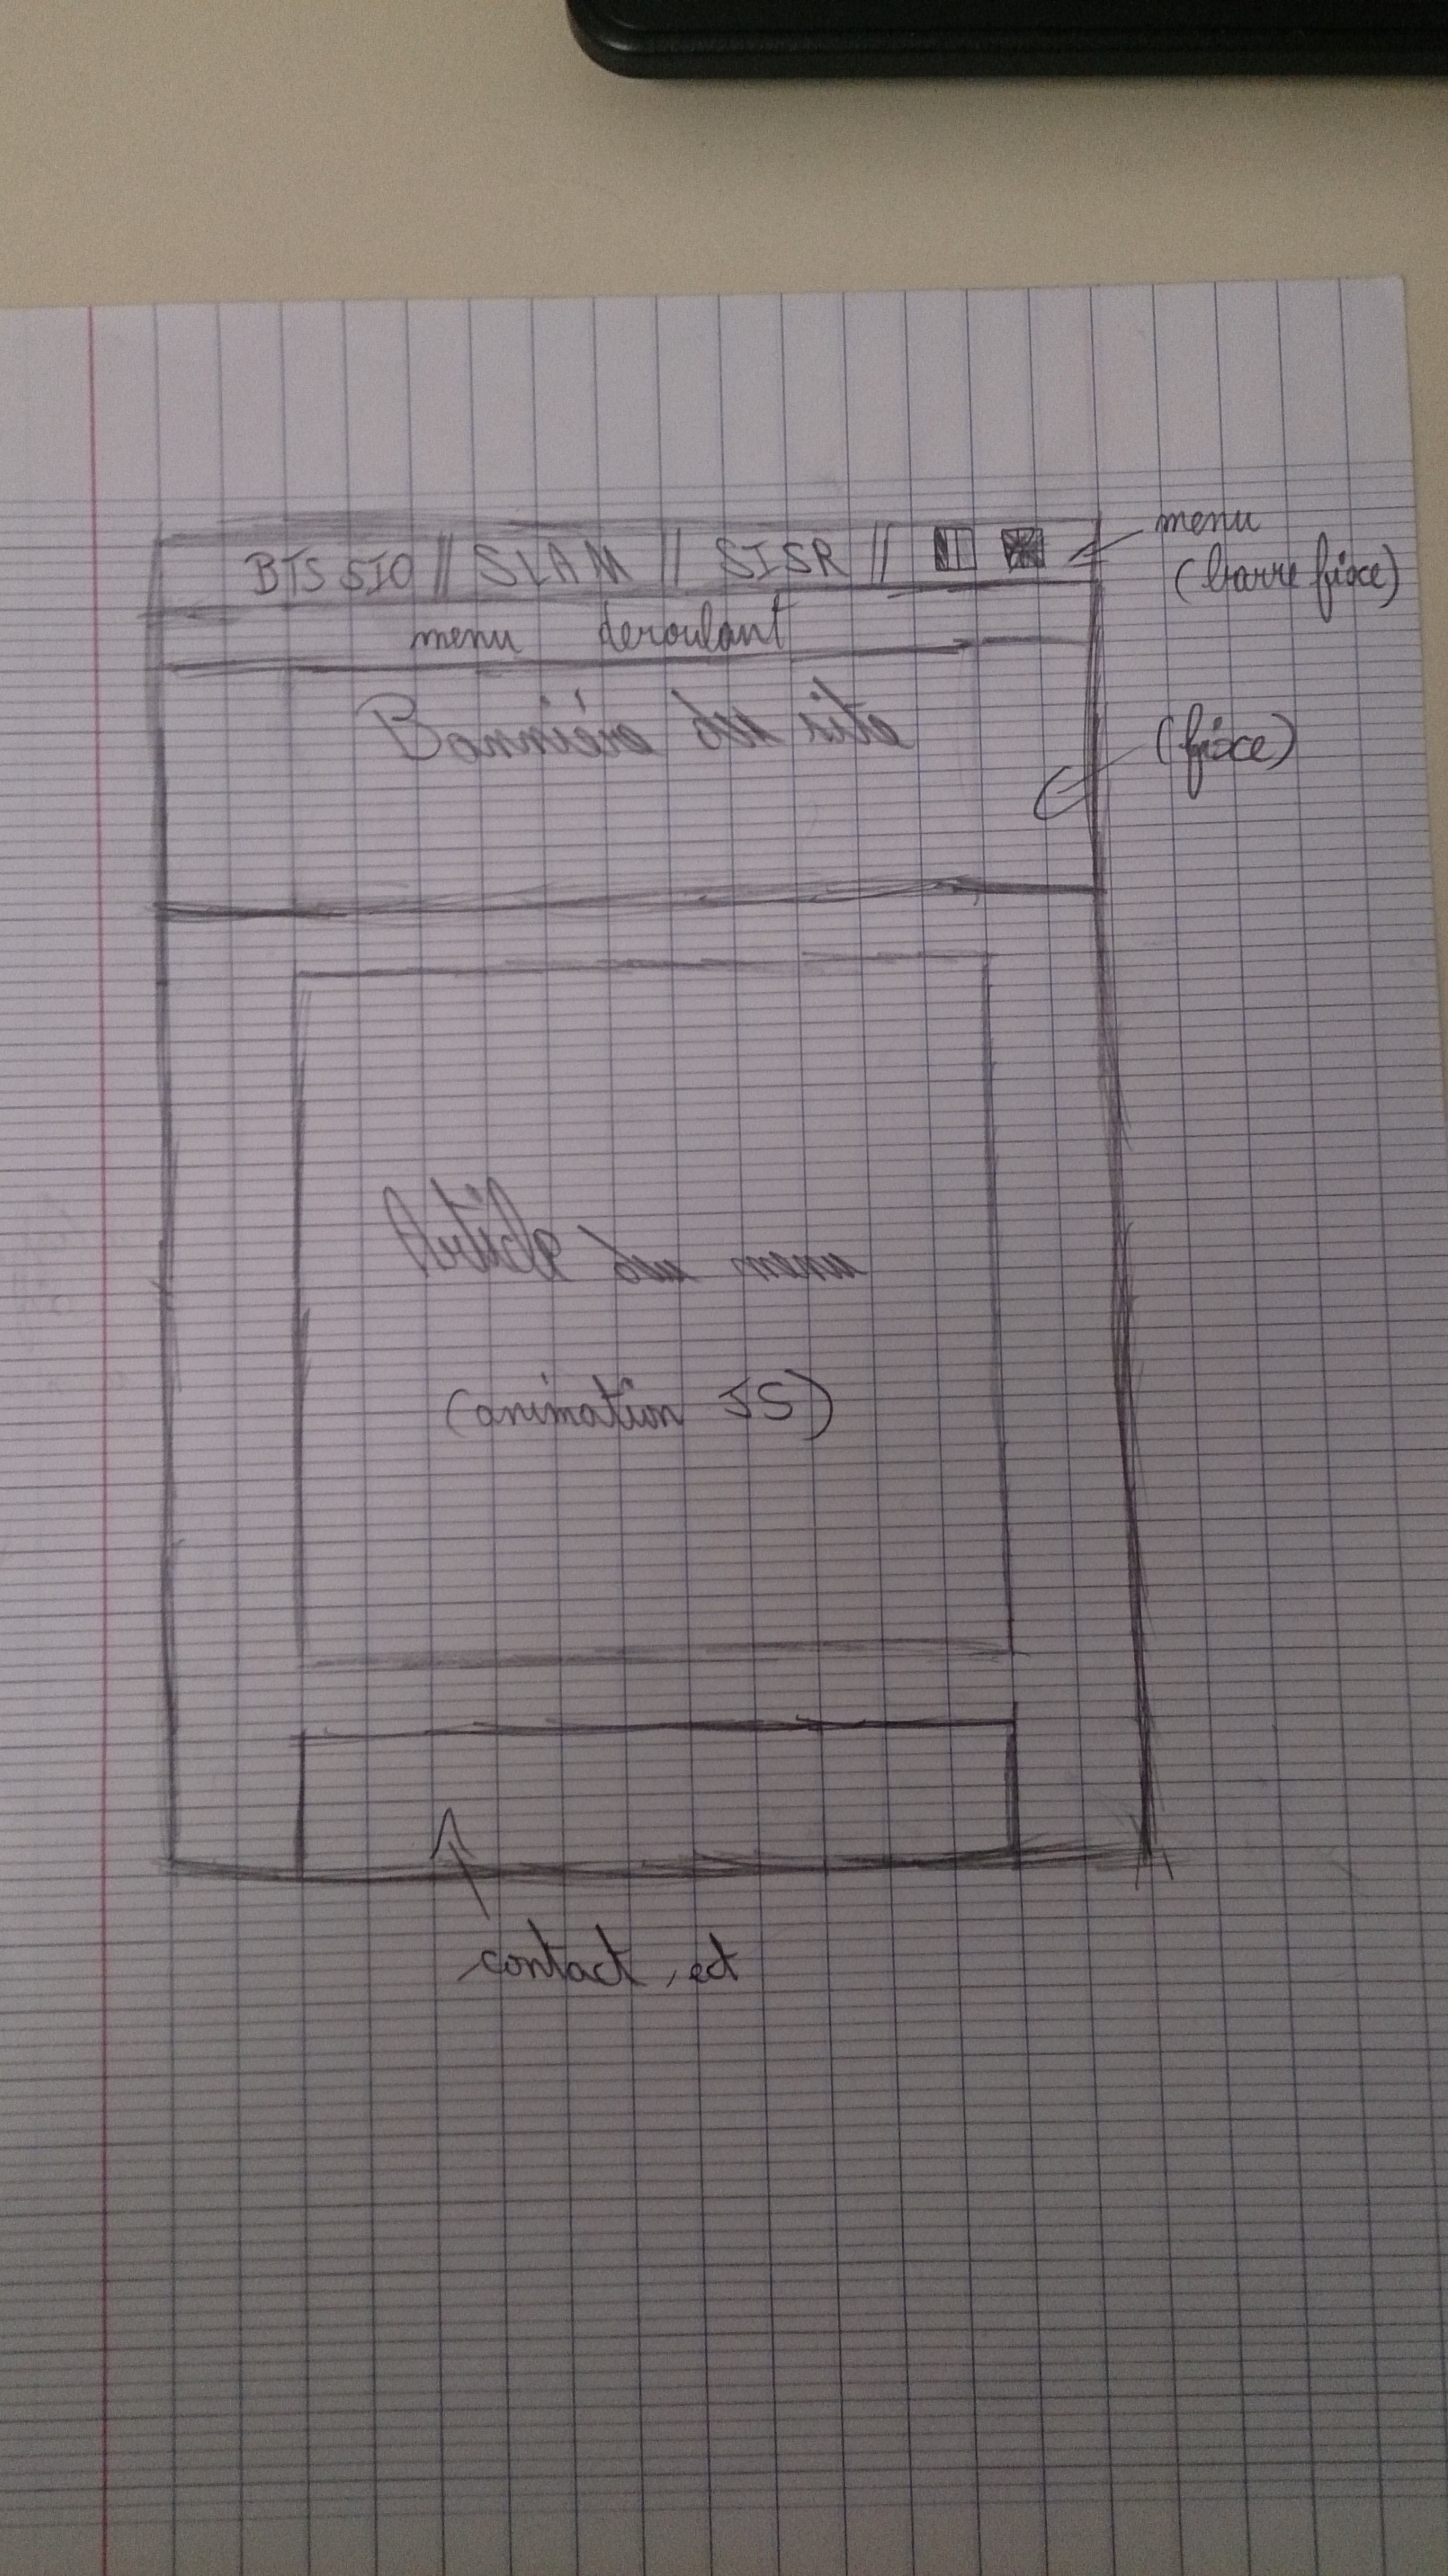 BTS SIO // SLAM // SISR //
menu
(barre fixe)
menu deroulant
Bannière du site
(fixe)
Article du menu
(animation JS)
contact, ect